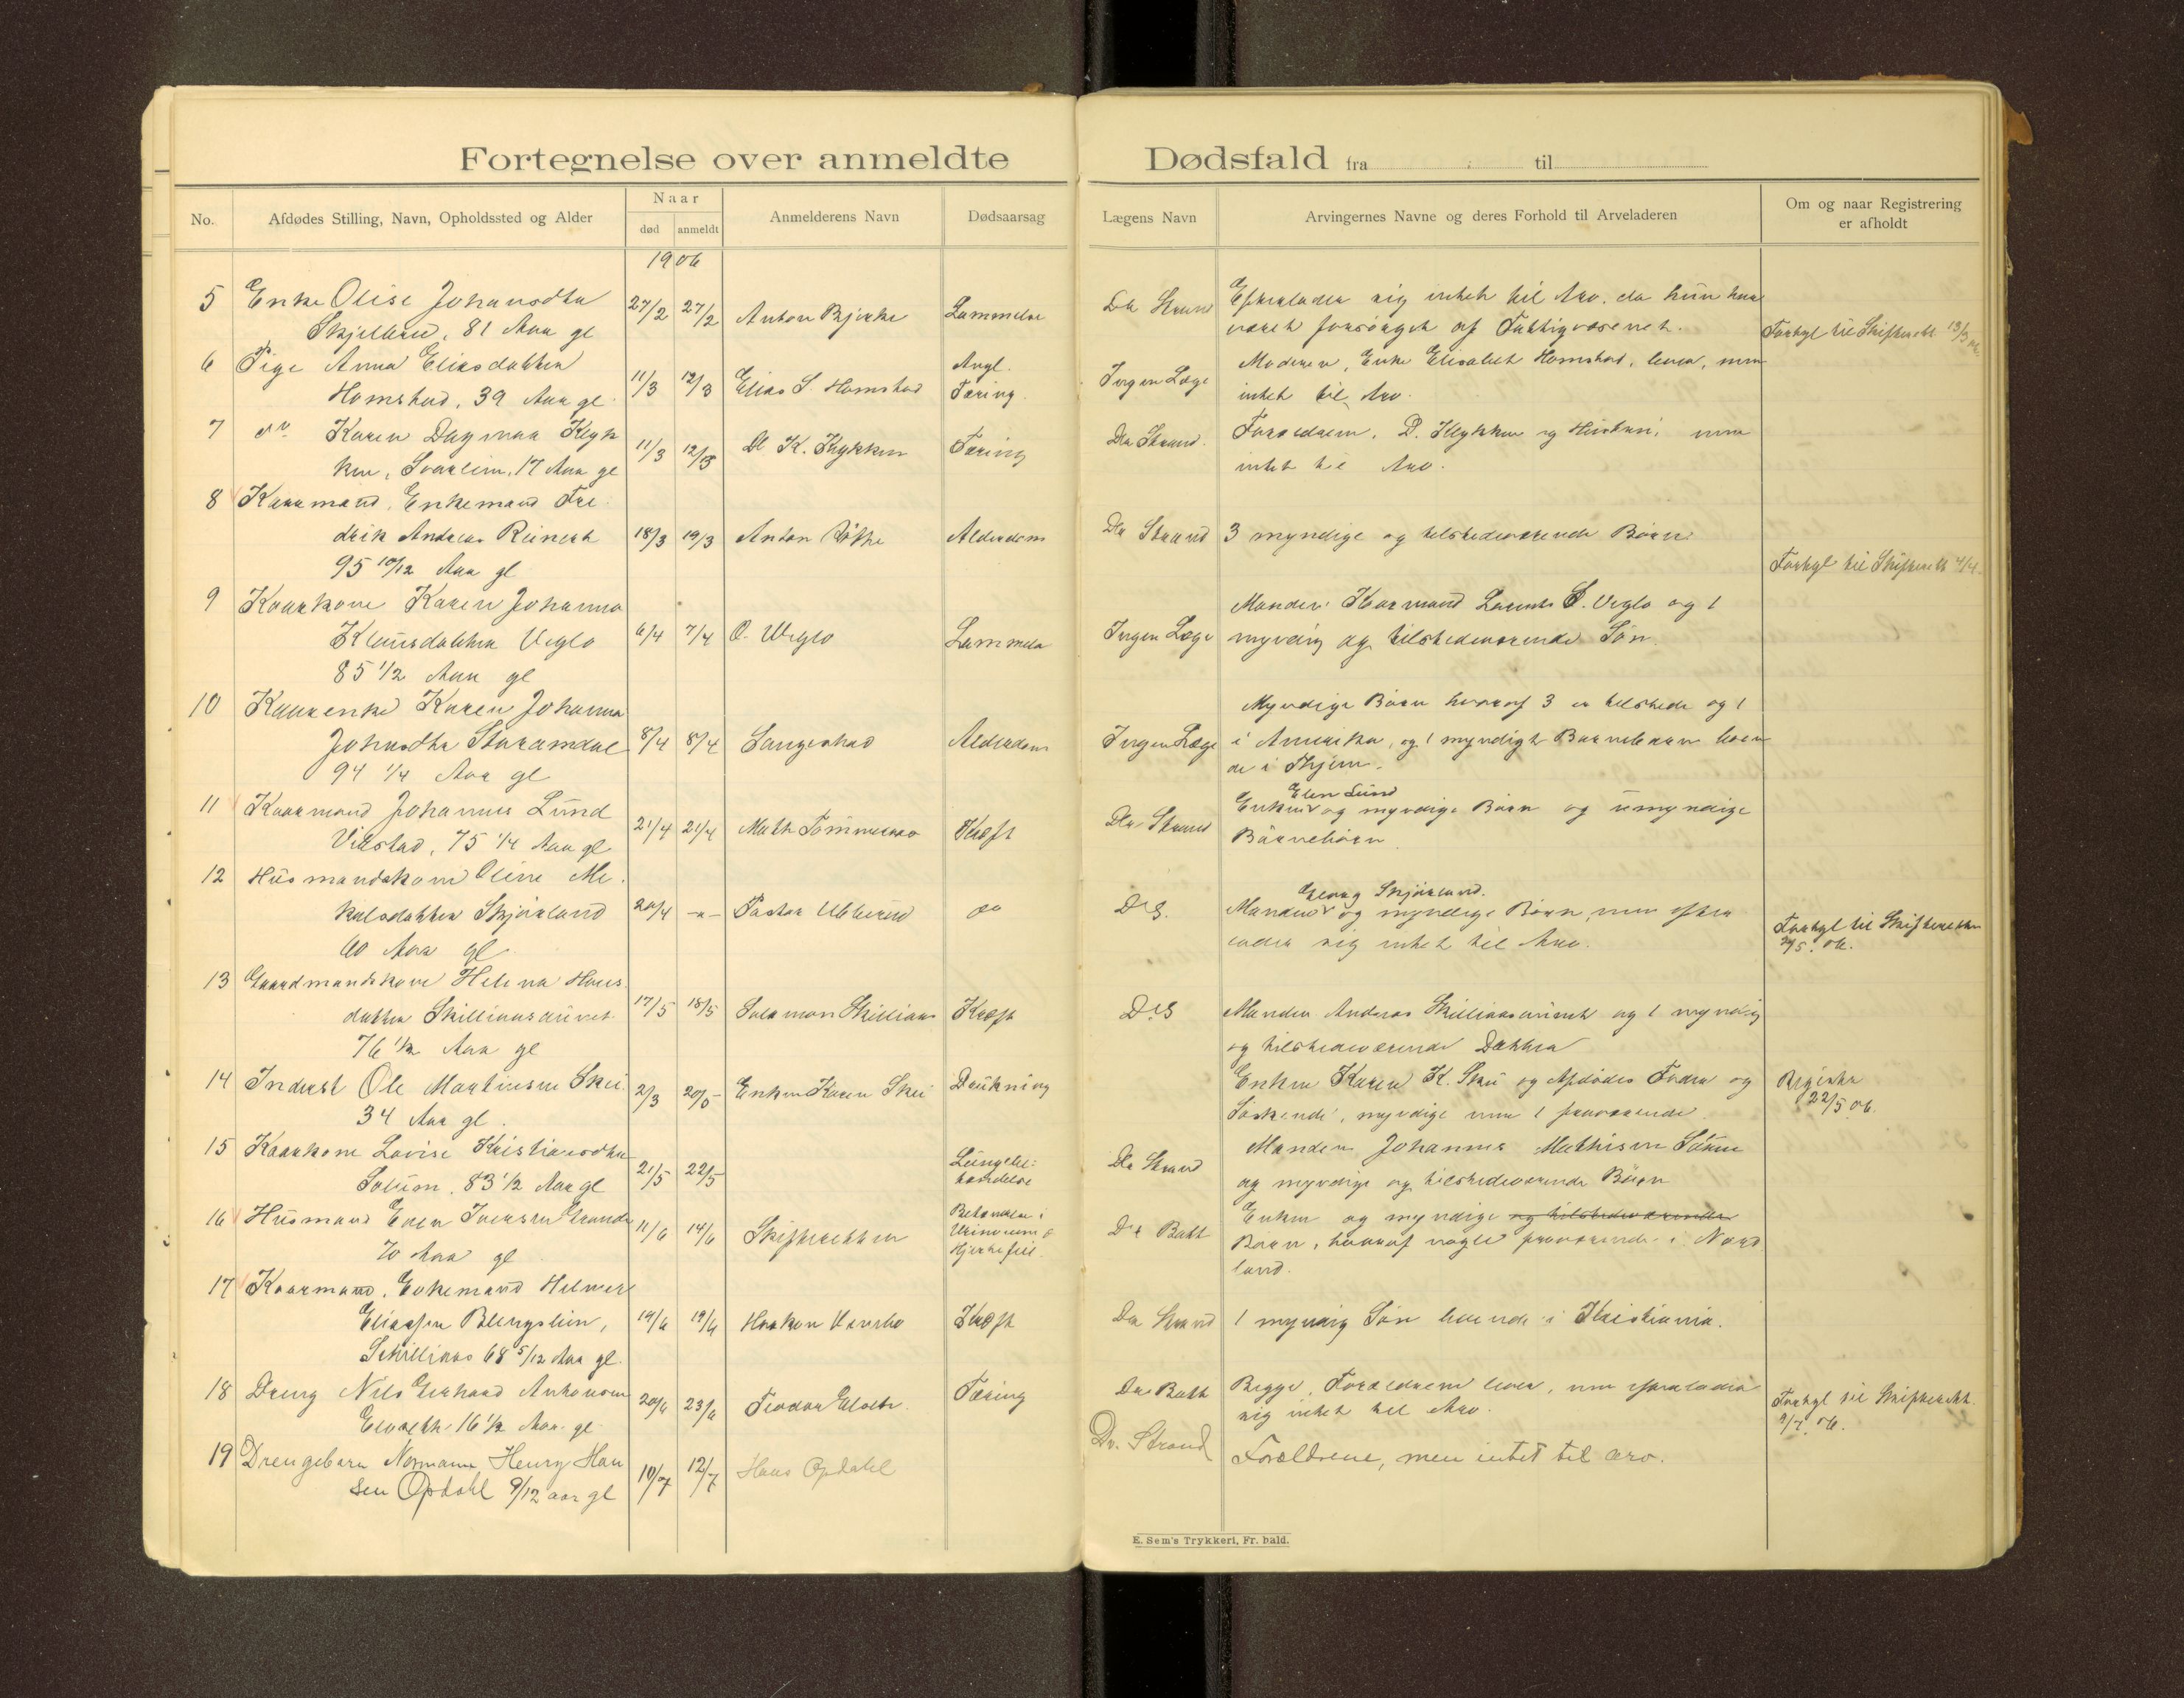 Fortegnelse over anmeldte Dødsfald fra til
No.
Afdødes Stilling, Navn, Opholdssted og Alder
Naar
død
anmeldt
Anmelderens Navn
Dødsaarsag
Lægens Navn
Arvingernes Navne og deres Forhold til Arveladeren
Om og naar Registrering
er afholdt
1906
5 Enke Olise Johansdtr 27/2 27/2 Anton Bjerke Lammelse Dr Strand Efterlader sig intet til Arv. da hun har
81 Aar gl været forsørget af Fattigvæsenet.
6 Pige Anna Eliasdatter Moderen, Enke Elisabet Homstad, lever, men
Homstad, 39 Aar gl. 11/3 12/3 Elias S. Homstad Tæring. Ingen Læge intet til Arv.
7 Karen Dagmar Klyk 11/3 12/3 K. Klykken Tæring Dr Strand. Forældrene, P. Klykken og Hustru, men
ken, 17 Aar gl intet til Arv.
8 Kaarmand, Enkemand Fre
drik Andreas Reinert 18/3 19/3 Anton Alderdom Dr Strand 3 myndige og tilstedeværende Børn
95 10/12 Aar gl Forkyl til Skifteret 4/4.
9 Kaarkone Karen Johanna Manden Kaarmand
Klausdatter Veglo 6/4 7/4 O. Veglo Lammelse Ingen Læge myndig og tilstedeværende Søn.
85 1/2 Aar gl
10 Kaarenke Karen Johanna Myndige Børn hvoraf 3 er tilstede og 1
Johnsdtr 8/4 8/4 Langestad Alderdom Ingen Læge i Amerika, og 1 myndigt Barnebarn leven
94 1/4 Aar gl de i Thjem.
11 Kaarmand Johannes Lund Elen Lund
Enken og myndige Børn og umyndige
Vikstad, 75 1/4 Aar gl 21/4 21/4 Kræft Dr Strand Børnebørn
12 Husmandskone Oline Mi
kalsdatter Skjørland 20/4 -"- Pastor Ubberud Do D.S. Georg Skjørland.
Manden og myndige Børn, men efter
60 Aar gl lader sig intet til Arv. Forkyl til Skifteretten
13 Gaardmandskone Helena Hans
datter Skilliaasaunet 17/5 18/5 Salamon Skilliaas Kræft D.S Manden Andreas Skilliaasaunet og 1 myndig
76 1/2 Aar gl og tilstedeværende Datter
14 Inderst Ole Martinsen Skei 2/3 20/5 Enken Karen Skei Drukning Enken Karen K. Skei og Afdødes Fader og Registr
34 Aar gl. Søskende, myndige men 1 fraværende 22/5 06.
15 Kaarkone Lovise Kristiansdtr Manden Johannes Mathisen
Solum, 83 1/2 Aar gl 21/5 22/5 Lungebe-
tændelse Dr Strand og myndige og tilstedeværende Børn
16 Husmand Even Iversen Strand 11/6 14/6 Skifteretten Betændelse i
Hjertefeil. Dr Batt Enken og myndige og tilstedeværende
70 Aar gl Børn, hvoraf nogle fraværende i Nord
land.
17 Kaarmand, Enkemand Hilmer
Eliassen 19/6 19/6 Haakon Kræft Dr Strand 1 myndig Søn levende i Kristiania.
Skilliaas 68 5/12 Aar gl.
18 Dreng Nils Gerhard Antonsen 20/6 23/6 Tæring Dr Batt Begge Forældrene lever, men efterlader
16 1/2 Aar gl sig intet til Arv. Forkyl til Skifterett.
19 Drengebarn Normann Henry Han 10/7 12/7 Hans Opdahl Dr. Strand Forældrene, men intet til arv.
sen Opdahl 9/12 aar gl
E. Sem's Trykkeri, Fr. hald.